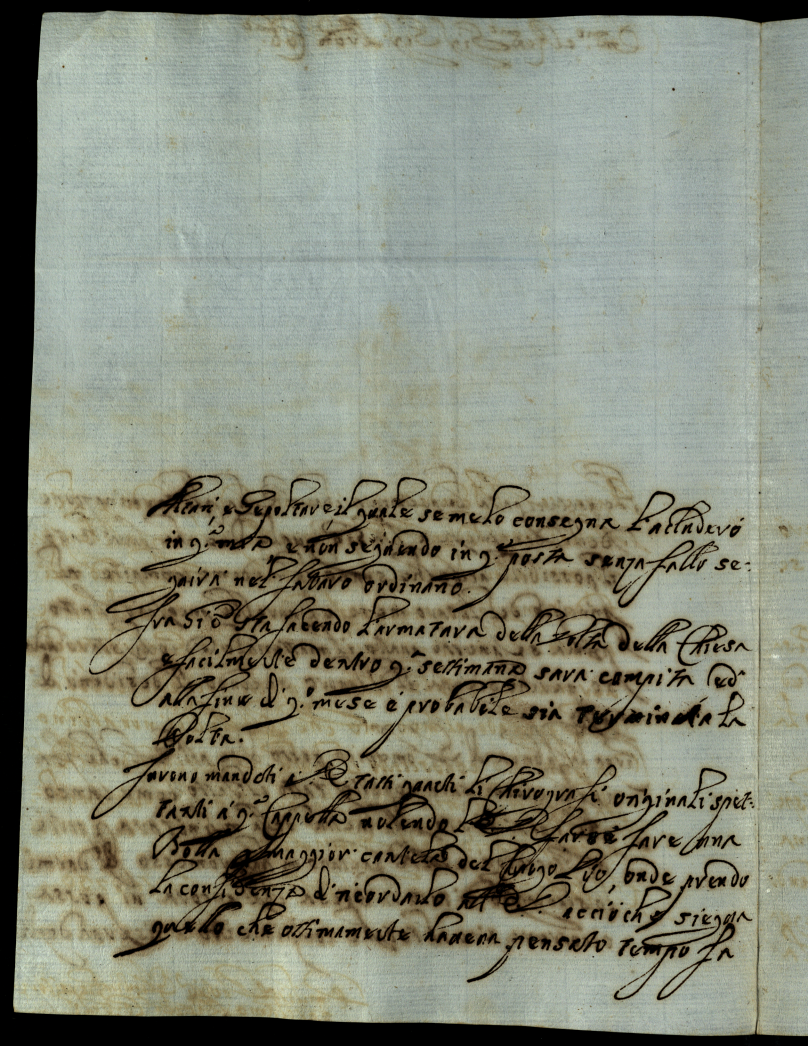 e Sepolture il quale se me lo consegna l'accluderò
in q.ta mia e non seguendo in q.ta posta senza fallo se-
guirà nel futuro ordinario.
Si sta facendo l'armatura della Volta della Chiesa
e facilmente dentro q.ta settimana sara compita ed
alla fine di q.o mese è probabile sia terminata la
Volta.
Furono mandati tutti quanti li Chirografi originali spet-
tanti à q.ta Cappella volendo farne fare una
Bolla maggior cautela del luogo Pio, onde prendo
la confidenza di ricordarlo acciò che siegua
quello che ottimamente haveva pensato tempo fa